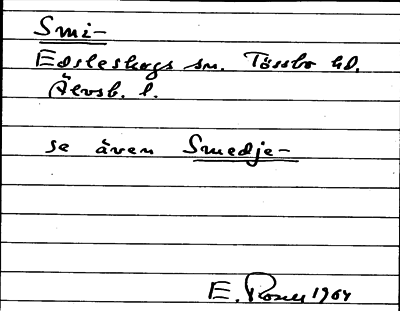 Smi-
Edsleskogs sn. Tössbo hd.
Älvsb. l.
se även Smedje-
E. Rosell 1964